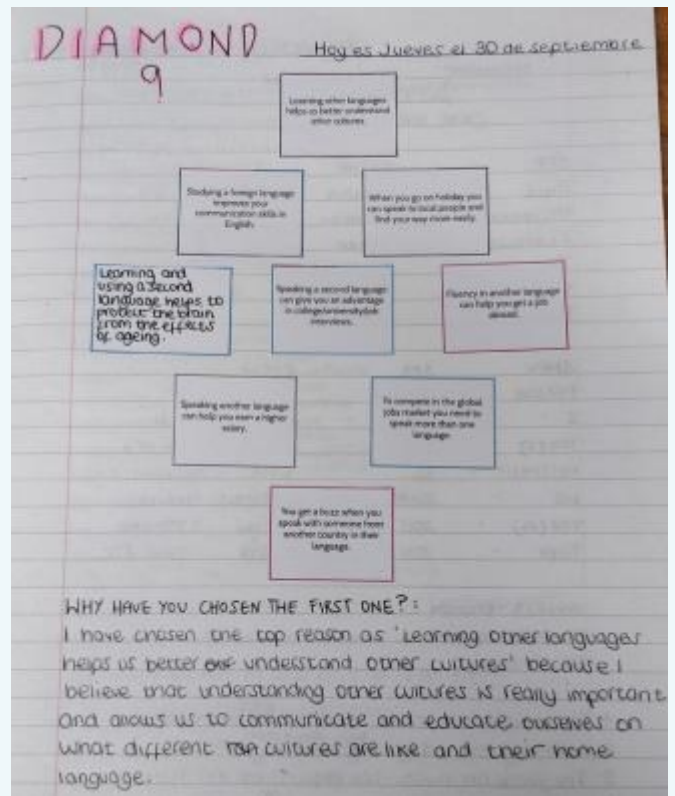 DIAMOND
9
Hoy es Jueves el 30 de septiembre
Learning other languages
helps us better understand
other cultures.
Studying a foreign language
improves your
communication skills in
English.
When you go on holiday you
can speak to local people and
find your way more easily.
Learning and
using a second
language helps to
protect the brain
from the effects
of ageing.
Speaking a second language
can give you an advantage
in college/university/job
interviews.
Fluency in another language
can help you get a job
abroad.
Speaking another language
can help you earn a higher
salary.
To compete in the global
jobs market you need to
speak more than one
language.
You get a buzz when you
speak with someone from
another country in their
language.
WHY HAVE YOU CHOSEN THE FIRST ONE?:
I have chosen the top reason as 'Learning other languages
helps us better understand other cultures' because I
believe that understanding other cultures is really important
and allows us to communicate and educate ourselves on
what different cultures are like and their home
language.